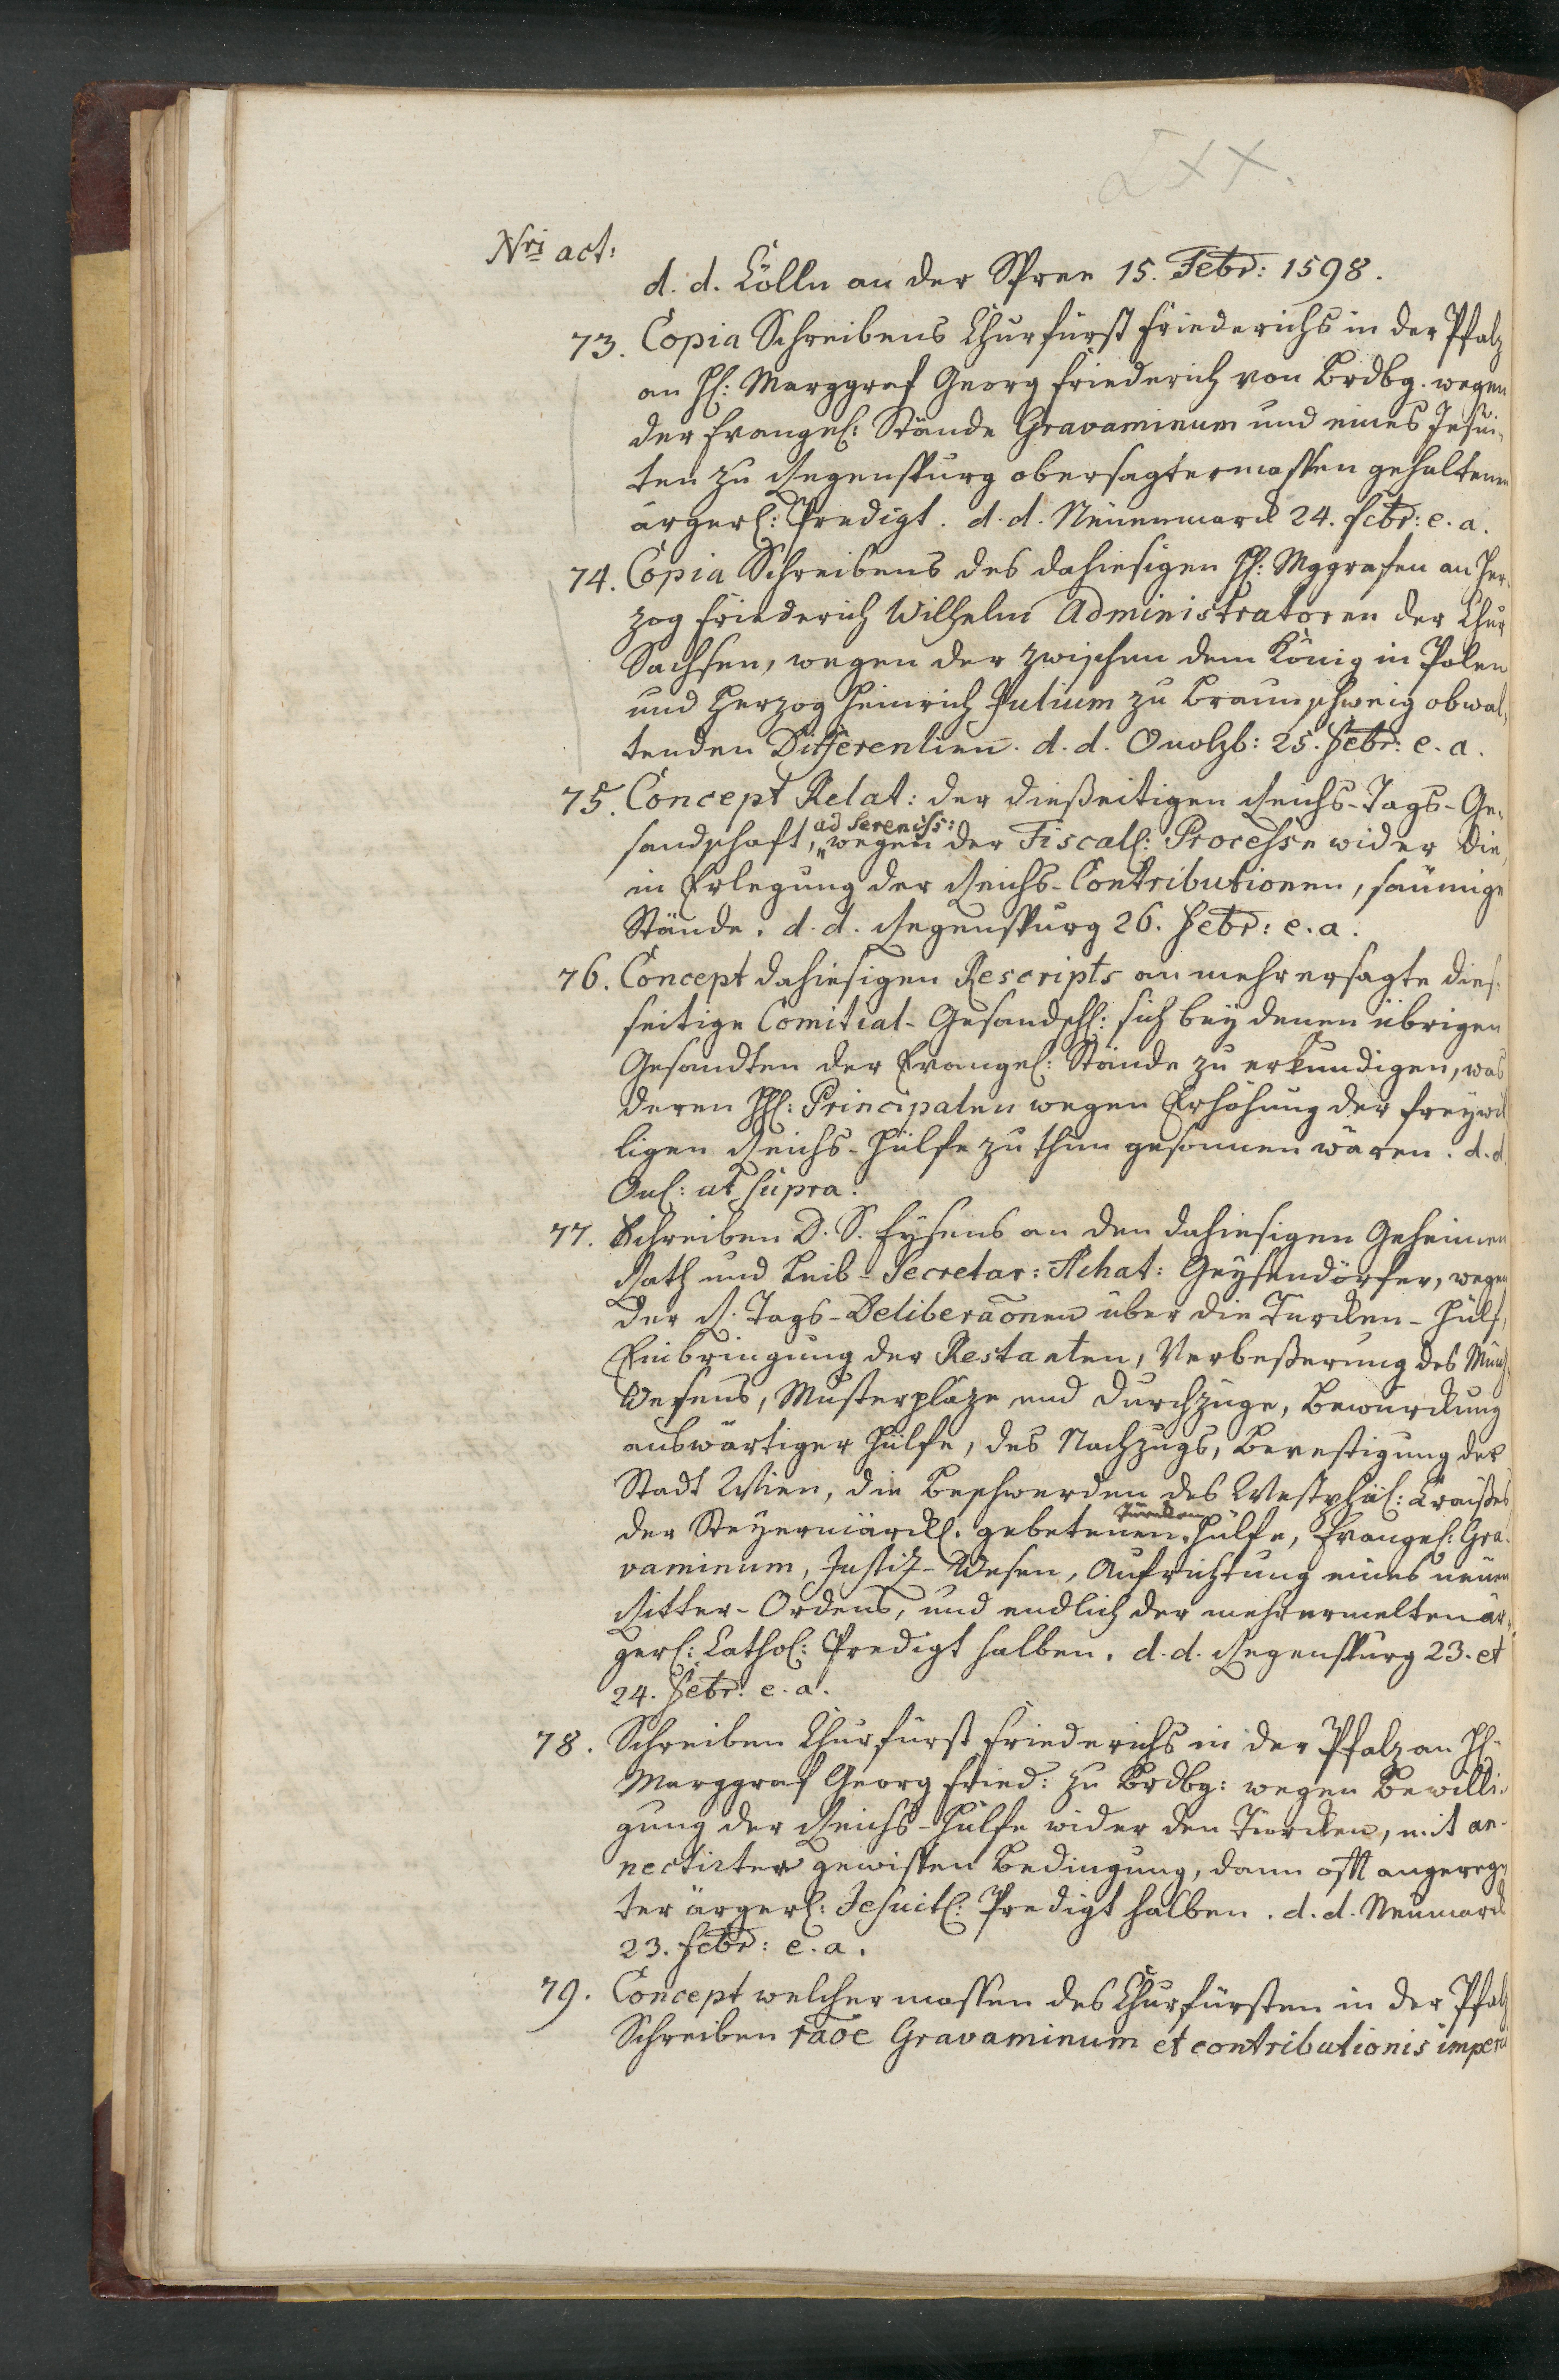 LXX.
Nri act:
d. d. Cölln an der Spree 15. Febr: 1598.
73. Copia Schreibens Churfürst Friederichs in der Pfalz
an H: Marggraf Georg Friederich von Brdbg. wegen
der Evangel: Stände Gravaminum und eines Jesui-
ten zu Regenspurg obersagtermassen gehaltenen
ärgerl: Predigt. d. d. Neuenmarck 24. Febr: e. a.
74. Copia Schreibens des dahiesigen H: Mggrafen an Her-
zog Friederich Wilhelm Administratoren der Chur
Sachsen, wegen der zwischen dem König in Polen
und Herzog Heinrich Julium zu Braunschweig obwal-
tenden Differentien. d. d. Onolzb: 25. Febr: e. a.
75. Concept Relat: der dießeitigen Reichs-Tags-Ge-
sandschaft, ad Sereniss: wegen der Fiscal: Processe wider die,
in Erlegung der Reichs-Contributionen, säumige
Stände. d. d. Regenspurg 26. Febr: e. a.
76. Concept dahiesigen Rescripts an mehrersagte dies-
seitige Comitial-Gesandschl: sich bey denen übrigen
Gesandten der Evangel: Stände zu erkundigen, was
deren HH: Principalen wegen Erhöhung der freywil
ligen Reichs-Hülfe zu thun gesonnen wären. d. d.
Onl: ut supra.
77. Schreiben D. S. Eysens an den dahiesigen Geheimen
Rath und Leib-Secretar: Achat: Geysendörfer, wegen
der R. Tags-Deliberaonen über die Türcken-Hülf,
Einbringung der Restanten, Verbeßerung des Münz
Wesens, Musterpläze und Durchzüge, Bewürckung
auswärtiger Hülfe, des Nachzugs, Bevestigung der
Stadt Wien, die Beschwerden des Westphäl: Craißes
der Steyermärckl: gebetenen Türcken Hülfe, Evangel: Gra-
vaminum, Justiz-Wesen, Aufrichtung eines neuen
Ritter-Ordens, und endlich der mehrermelten är-
gerl: Cathol: Predigt halben. d. d. Regenspurg 23. et
24. Febr: e. a.
78. Schreiben Churfürst Friederichs in der Pfalz an H:
Marggraf Georg Fried: zu Brdbg: wegen Bewilli-
gung der Reichs-Hülfe wider den Türcken, mit an-
nectirter gewissen Bedingung, dann offt angereg-
ter ärgerl: Jesuitl: Predigt halben. d. d. Neumarck
23. Febr: e. a.
79. Concept welchermassen des Churfürsten in der Pfalz
Schreiben raoe Gravaminum et contributionis imperii